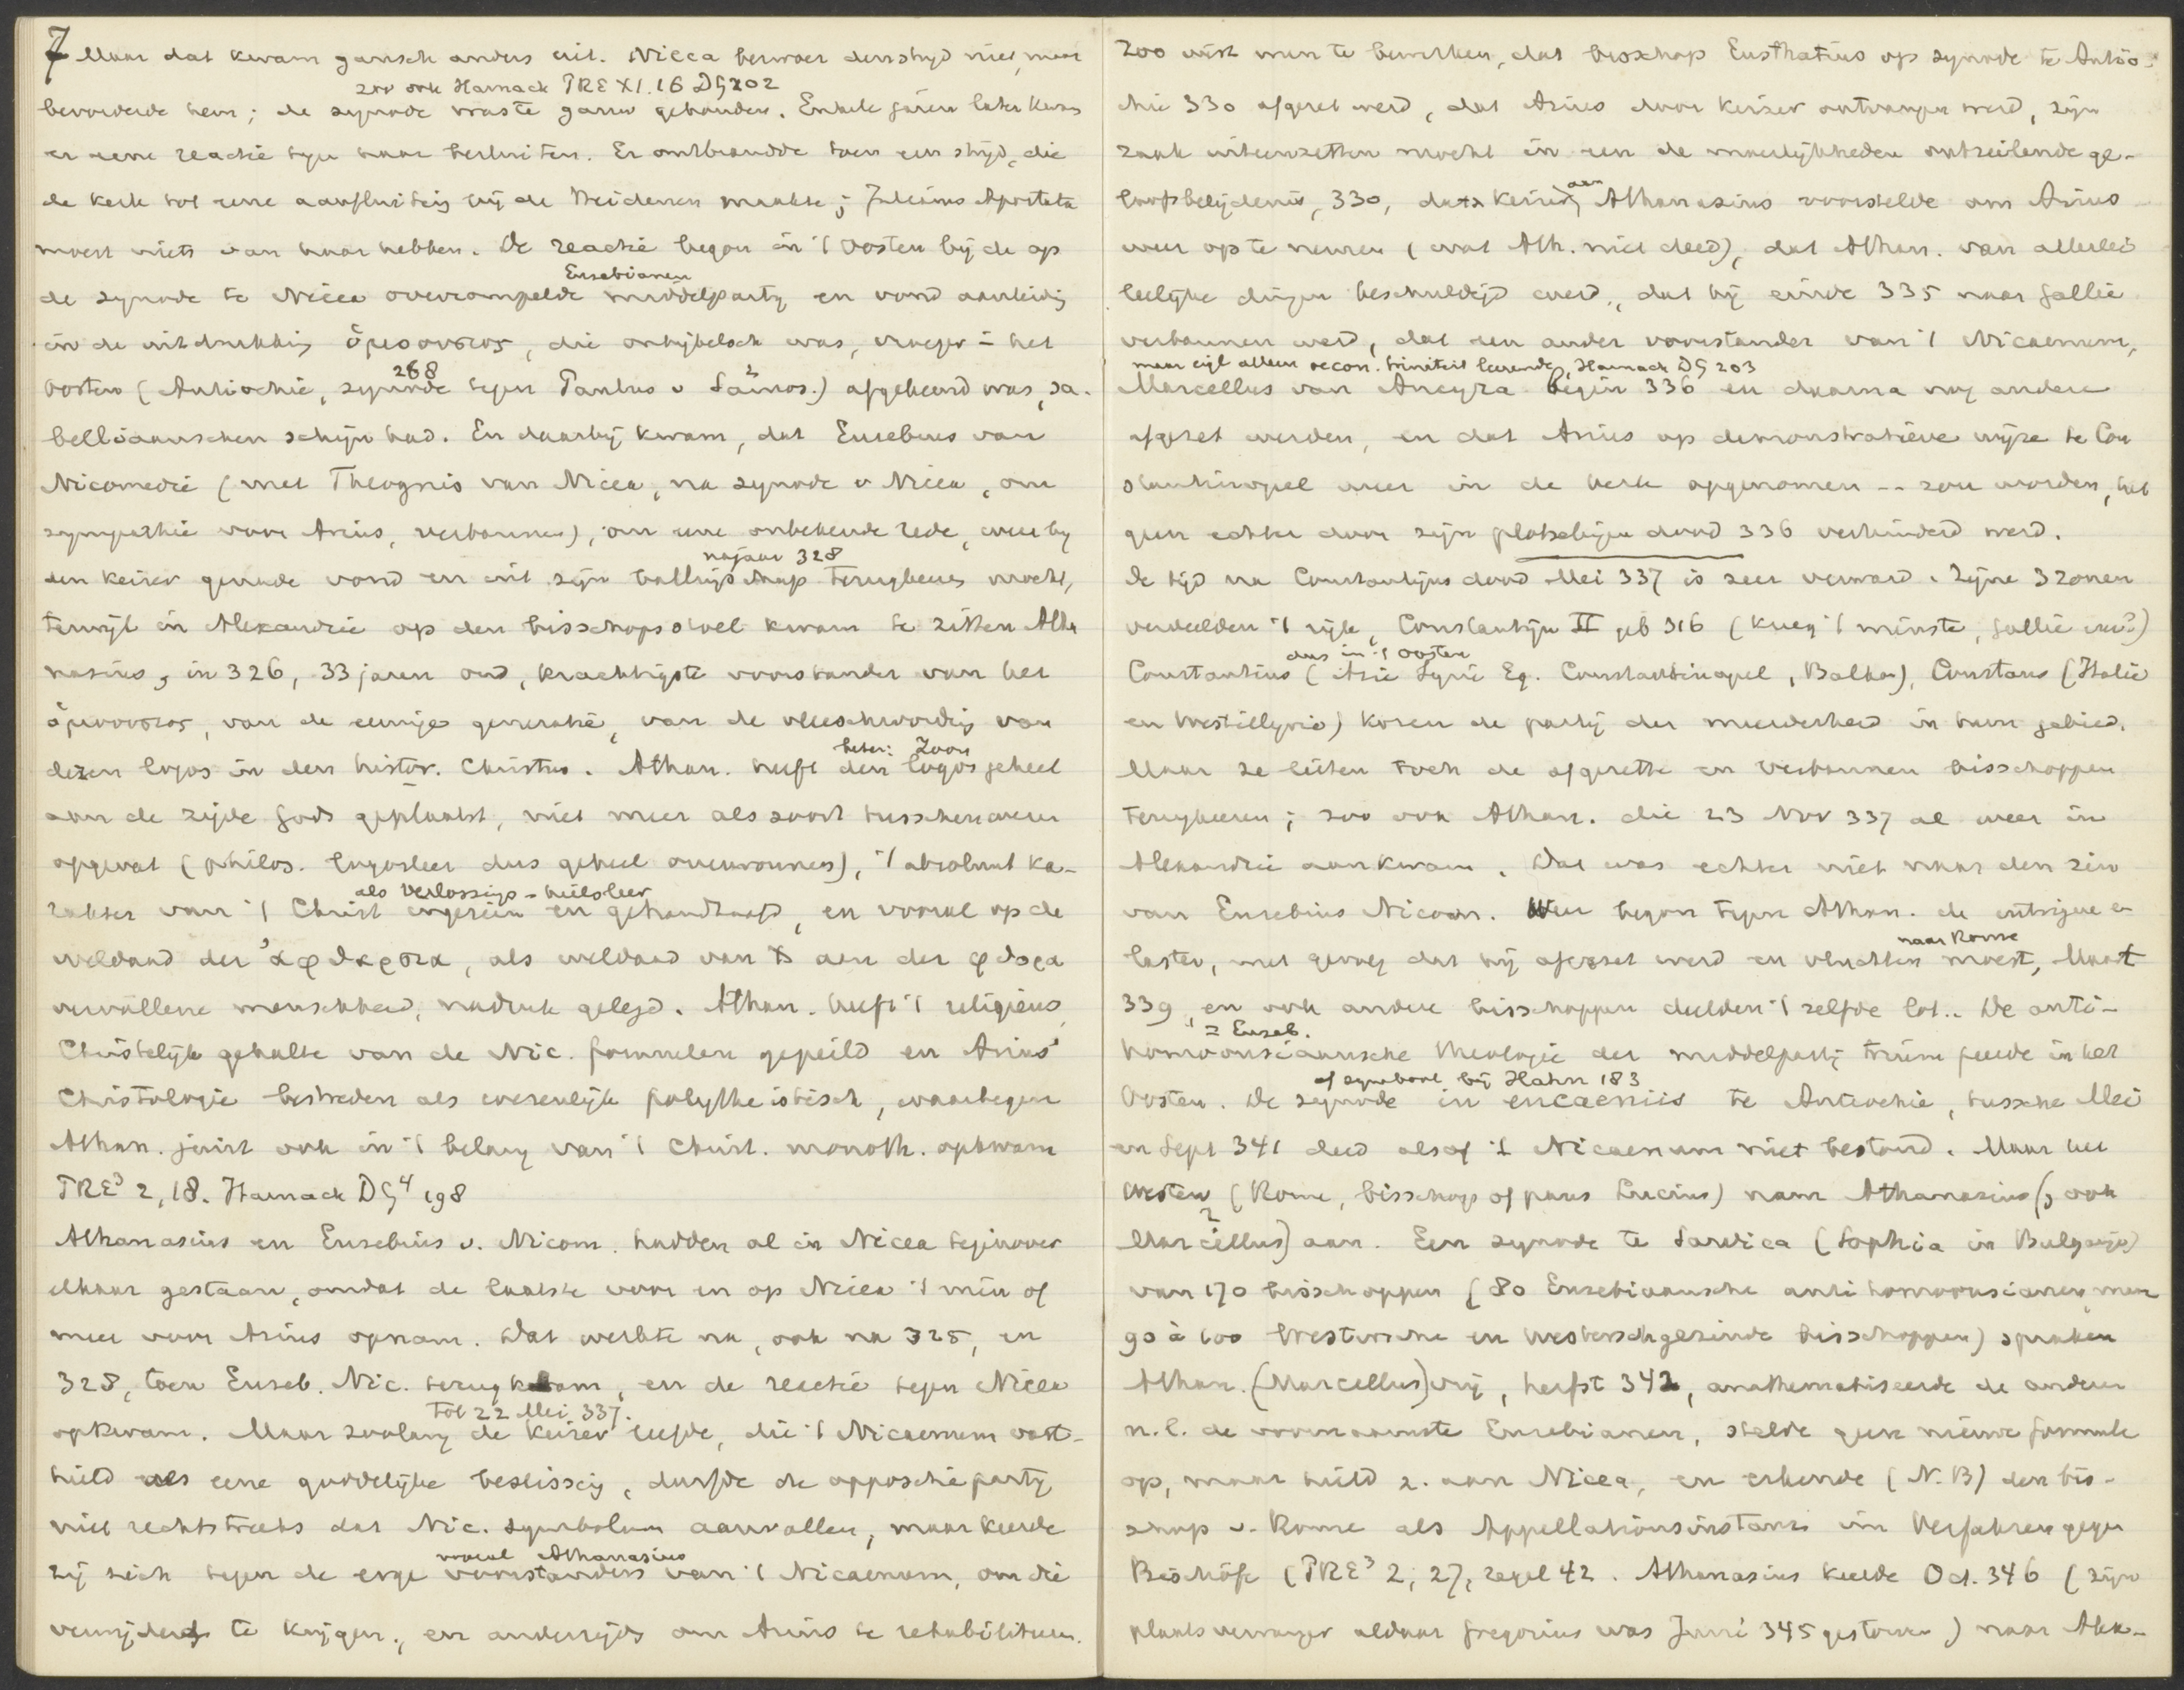 7 Maar dat kwam gansch anders uit. Nicea bezwoer den strijd niet, maar
zoo ook Harnack PRE XI. 16 DG 202
bevorderde hem; de synode moste gauw gehouden. Enkele jaren later kwam
er eene reactie tegen haar besluiten. Er ontbrandde toen een strijd, die
de kerk tot eene aanfluiting bij de Heidenen maakte; Julianus Apostata
moest niets van haar hebben. De reactie begon in 't Oosten bij de op
Eusebianen
de synode te Nicea overrompelde middelpartij en vond aanleiding
in de uitdrukking ὁμοουσιος, die onbijbelsch was, vroeger in het
268
Oosten (Antiochië, synode tegen Paulus v Samos.) afgekeurd was, sa-
belliaanschen schijn had. En daarbij kwam, dat Eusebius van
Nicomedië (met Theognis van Nicea, na synode v Nicea, om
sympathie voor Arius, verbannen), om eene onbekende rede, weer bij
najaar 328
den keizer genade vond en uit zijn ballingschap terugkeeren mocht,
terwijl in Alexandrië op den bisschopsstoel kwam te zitten Atha
nasius, in 326, 33 jaren oud, krachtigste voorstander van het
ὁμοουσιος, van de eeuwige generatie, van de vleeschwording van
beter: Zoon
dezen logos in den histor. Christus. Athan. heeft den logos geheel
aan de zijde Gods geplaatst, niet meer als soort tusschenwezen
opgevat (philos. logosleer dus geheel overwonnen), 't absoluut ka-
als verlossings-heilsleer
rakter van 't Christ ingezien en gehandhaafd, en vooral op de
weldaad der ἀφθαρσια, als weldaad van X aan der φθορα
vervallene menschheid, nadruk gelegd. Athan. heeft 't religieus,
Christelijk gehalte van de Nic. formulen gepeild en Arius'
Christologie bestreden als wezenlijk polytheistisch, waartegen
Athan. juist ook in 't belang van 't Christ. monoth. opkwam
PRE³ 2, 18. Harnack DG⁴ 198
Athanasius en Eusebius v. Nicom. hadden al in Nicea tegenover
elkaar gestaan, omdat de laatste voor en op Nicea 't min of
meer voor Arius opnam. Dat werkte na, ook na 325, en
328, toen Euseb. Nic. terugkwam, en de reactie tegen Nicea
Tot 22 Mei 337.
opkwam. Maar zoolang de keizer leefde, die 't Nicaenum vast-
hield als eene goddelijke beslissing, durfde de oppositiepartij
niet rechtstreeks dat Nic. symbolum aanvallen, maar keerde
vooral Athanasius
zij zich tegen de enge voorstanders van 't Nicaenum, om die
verwijderd te krijgen, en anderzijds om Arius te rehabiliteeren.
Zoo wist men te bewerken, dat bisschop Eusthatius op synode te Antio-
chië 330 afgezet werd, dat Arius door keizer ontvangen werd, zijn
zaak uiteenzetten mocht in een de moeilijkheden ontzeilende ge-
aan
loofsbelijdenis, 330, dat keizer Athanasius voorstelde om Arius
weer op te nemen (wat Ath. niet deed), dat Athan. van allerlei
leelijke dingen beschuldigd werd, dat hij einde 335 naar Gallië
verbannen werd, dat een ander voorstander van 't Nicaenum,
maar eigl alleen oecon. triniteit leerende, Harnack DG 203
Marcellus van Ancyra begin 336 en daarna nog andere
afgezet werden, en dat Arius op demonstratieve wijze te Con
stantinopel weer in de kerk opgenomen -- zou worden, het
geen echter door zijn plotselijen dood 336 verhinderd werd.
De tijd na Constantijns dood Mei 337 is zeer verward. Zijne 3 zonen
verdeelden 't rijk, Constantijn II geb 316 (kreeg 't minste, Gallië enz.)
dus in 't Oosten
Constantius (Azië Syrië Eg. Constantinopel, Balkan), Constans (Italië
en Westillyrië) kozen de partij der meerderheid in hun gebied.
Maar ze lieten toch de afgezette en verbannen bisschoppen
terugkeeren; zoo ook Athan. die 23 Nov 337 al weer in
Alexandrië aankwam. Dat was echter niet naar den zin
van Eusebius Nicom. Weer begon tegen Athan. de intrigue en
naar Rome
laster, met gevolg dat hij afgezet werd en vluchten moest, Maart
339, en ook andere bisschoppen deelden 't zelfde lot.. De anti-
= Euseb.
homoousiaansche theologie der middelpartij triumfeerde in het
of symbool bij Hahn 183
Oosten. De synode in encaeniis te Antiochië, tussche Mei
en Sept 341 deed alsof 't Nicaenum niet bestond. Maar het
Westen (Rome, bisschop of paus) nam Athanasius (, ook
Marcellus) aan. Een synode te Sardica (Sophia in Bulgarije)
van 170 bisschoppen (80 Eusebiaansche anti homoousianen, maar
90 à 100 Westersche en Westerschgezinde bisschoppen) spraken
Athan. (Marcellus) vrij, herfst 342, anathematiseerde de andere
n.l. de voornaamste Eusebianen, stelde geen nieuwe formule
op, maar hield z. aan Nicea, en erkende (N.B) den bis-
schop v. Rome als Appellationsinstanz im Verfahren gegen
Bischöfe (PRE³ 2, 27, regel 42. Athanasius keerde Oct. 346 (zijn
plaatsvervanger aldaar Gregorius was Juni 345 gestorven) naar Alex-